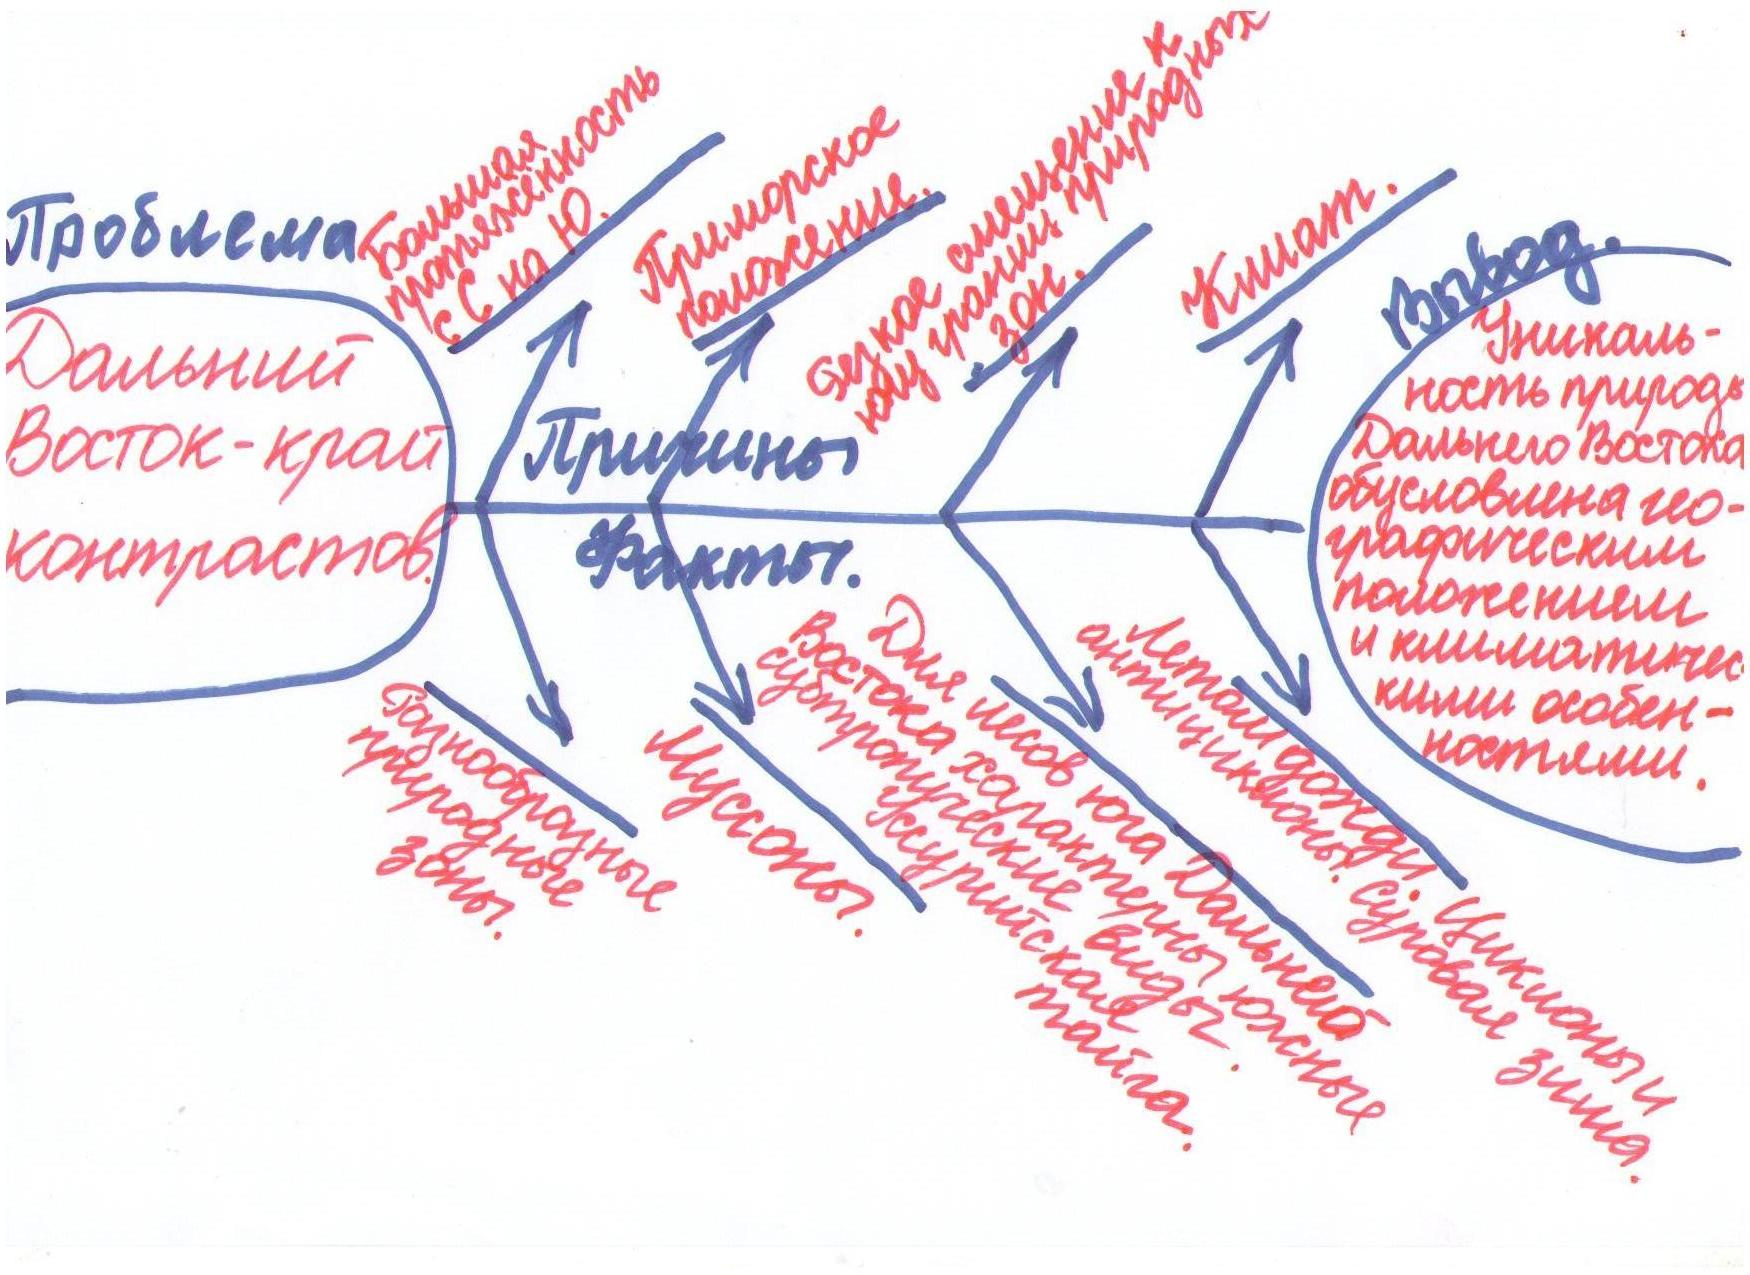 Проблема
Дальний
Восток-край
контрастов.
Большая
протяженность
с С на Ю.
Приморское
положение.
Резкое смещение к
югу границ природных
зон.
Климат.
Причины
Факты.
Разнообразные
природные
зоны.
Муссоны.
Для лесов юга Дальнего
Востока характерны южные
субтропические виды.
Уссурийская
тайга.
Летом дожди. Циклоны и
антициклоны. Суровая зима.
Вывод.
Уникаль-
ность природы
Дальнего Востока
обусловлена гео-
графическим
положением
и климатичес
кими особен-
ностями.